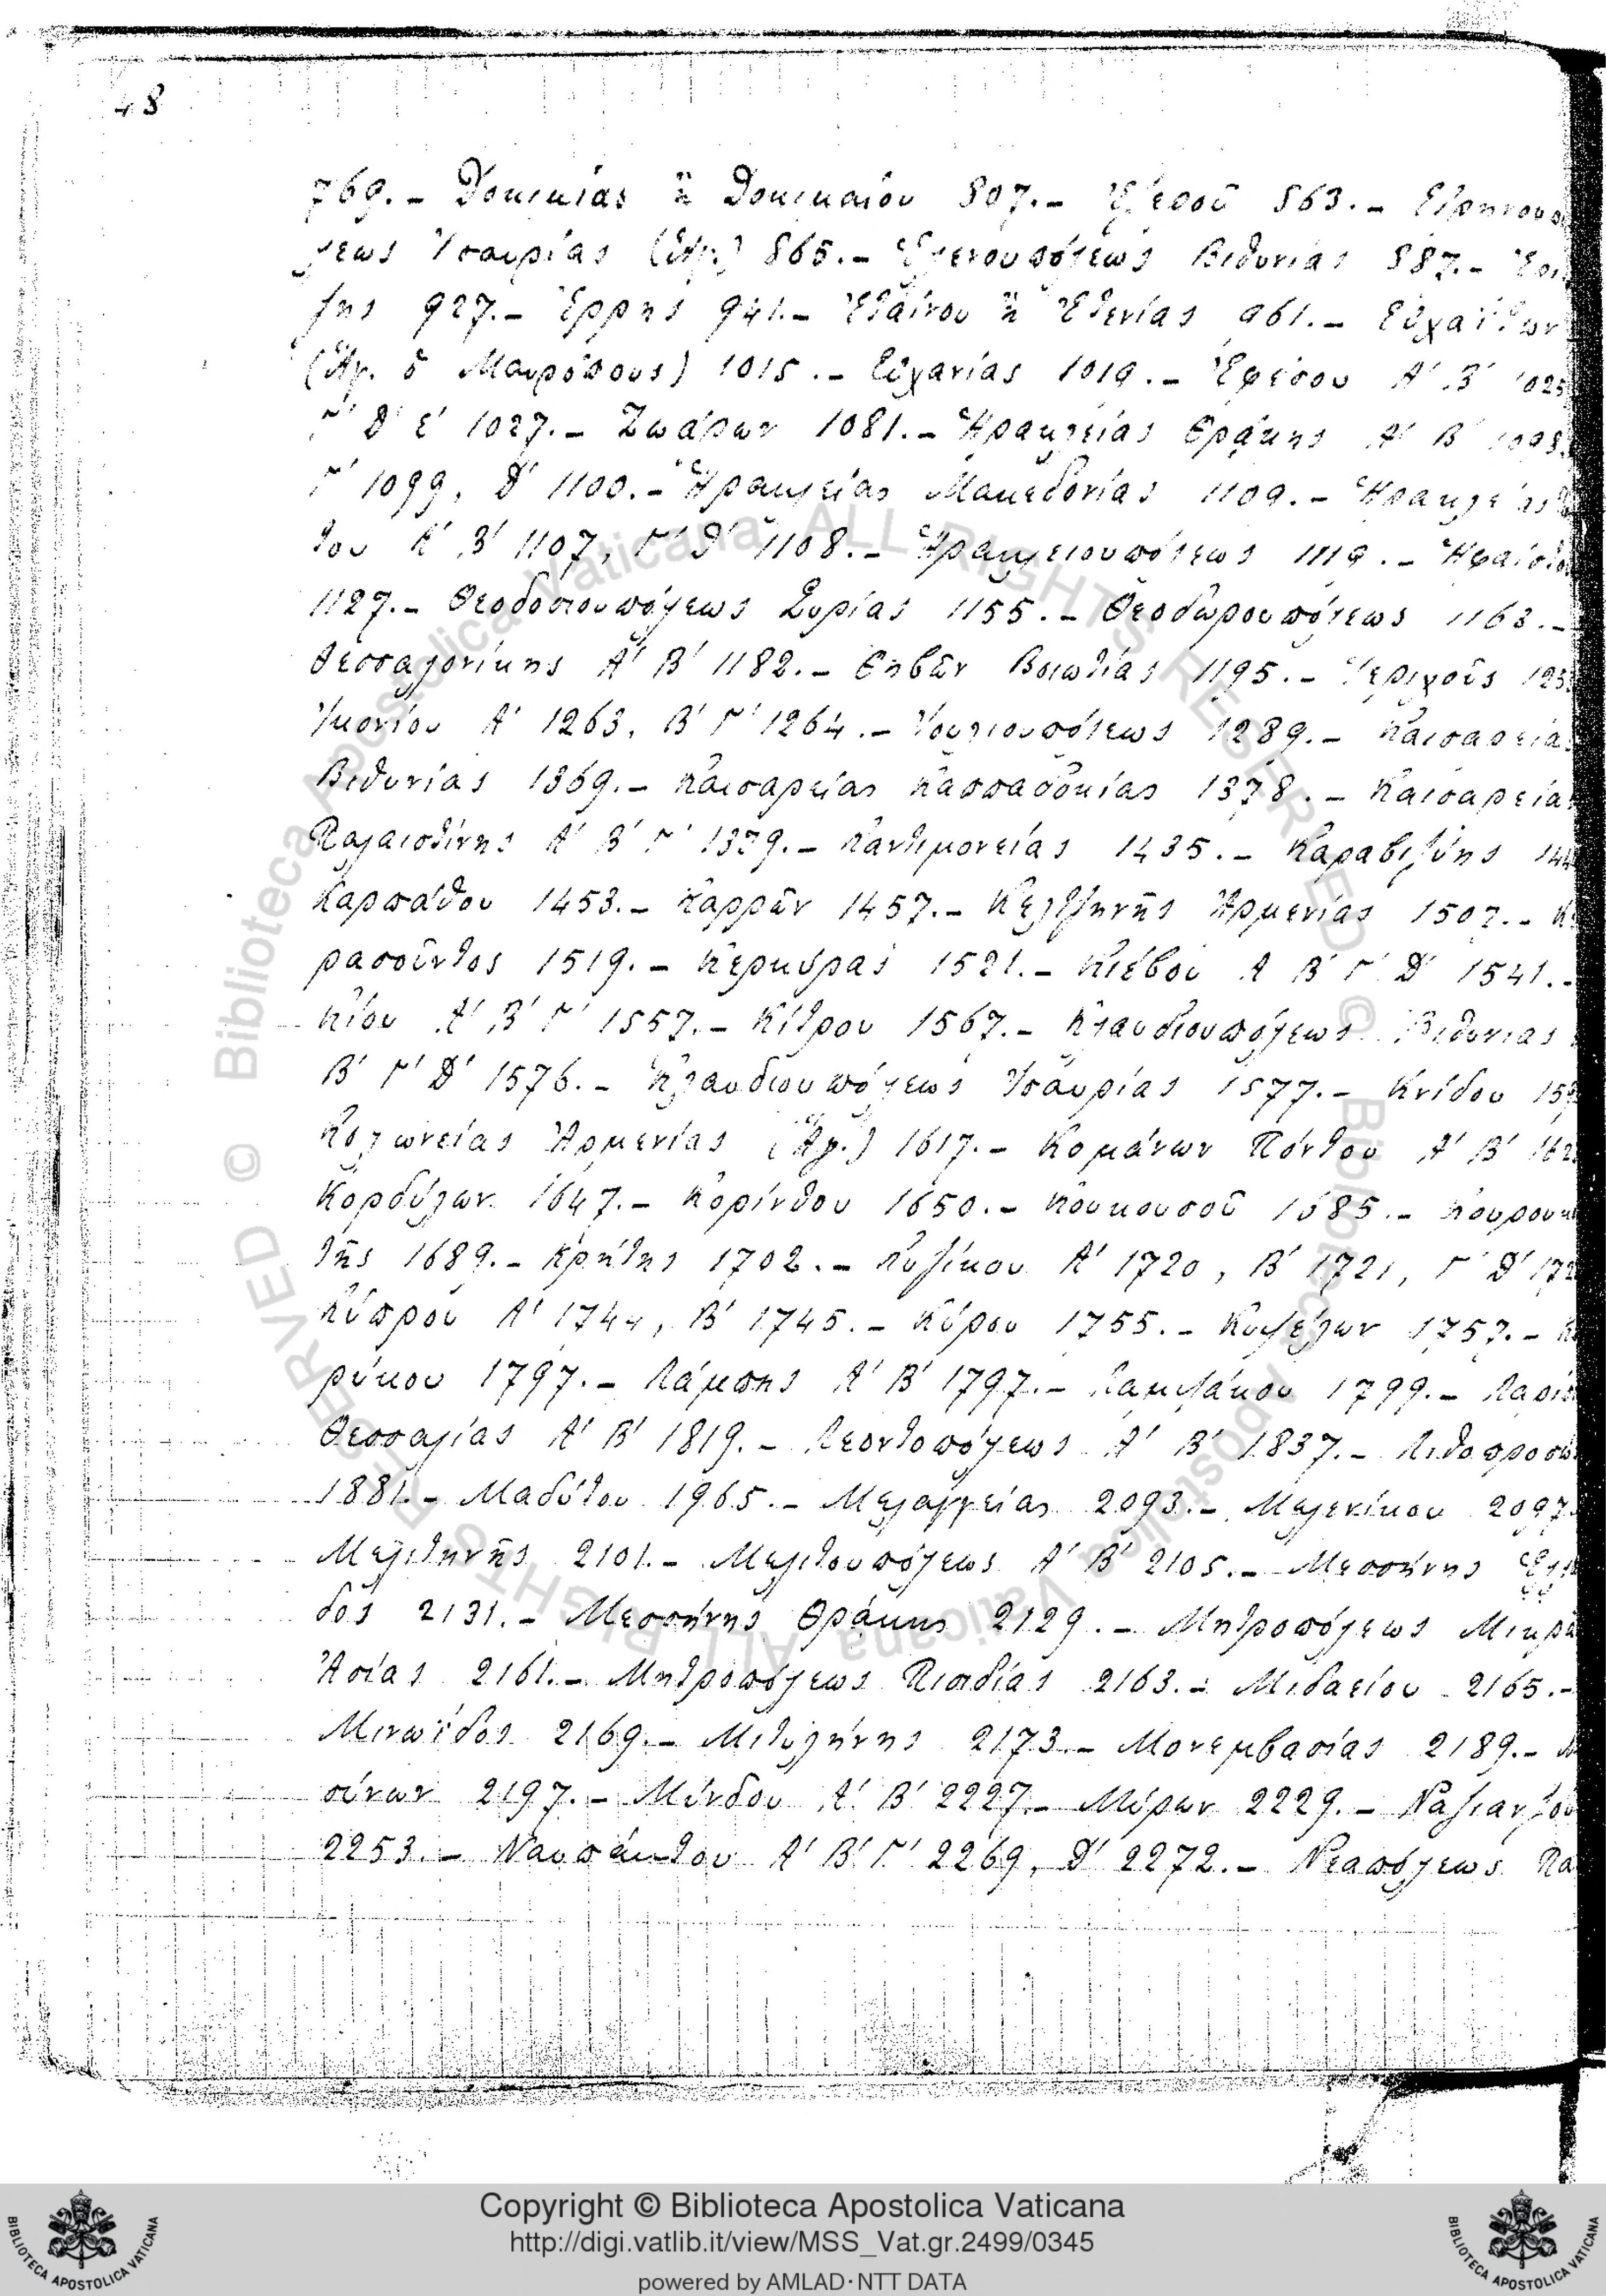 48
769.- Δοκικίας ἢ Δοκικαίου 807.- Ἐλεποῦ 863.- Εἰρηνουπό
λεως Ἰσαυρίας (Ἅγ.) 865.- Ἑλενουπόλεως Βιθυνίας 887.-
ζης 927.- Ἔρρης 941.- Ἐταίνου ἢ Ἐτενίας 961.- Εὐχαΐτων
(Ἅγ. ὁ Μαυρόπους) 1015.- Εὐχανίας 1019.- Ἐφέσου Α' Β' 1025
Γ' Δ' Ε' 1027.- Ζωάρων 1081.- Ἡρακλείας Θράκης Α' Β' 1098.
Γ' 1099, Δ' 1100.- Ἡρακλείας Μακεδονίας 1109.- Ἡρακλείας
του Α' Β' 1107, Γ' Δ' 1108.- Ἡρακλειουπόλεως 1119.- Ἡφαίστου
1127.- Θεοδοσιουπόλεως Συρίας 1155.- Θεοδωρουπόλεως 1163.-
Θεσσαλονίκης Α' Β' 1182.- Θηβῶν Βοιωτίας 1195.- Ἱεριχοῦς 125
Ἰκονίου Α' 1263, Β' Γ' 1264.- Ἰουλιουπόλεως 1289.- Καισαρείας
Βιθυνίας 1369.- Καισαρείας Καππαδοκίας 1378.- Καισαρείας
Παλαιστίνης Α' Β' Γ' 1379.- Κανθιμονείας 1435.- Καραβιζύης 144
Καρπάθου 1453.- Καρρῶν 1457.- Κελτζηνῆς Ἀρμενίας 1507.- Κε
ρασοῦντος 1519.- Κερκύρας 1521.- Κιέβου Α' Β' Γ' Δ' 1541.-
Κίου Α' Β' Γ' 1557.- Κίτρου 1567.- Κλαυδιουπόλεως Βιθυνίας
Β' Γ' Δ' 1576.- Κλαυδιουπόλεως Ἰσαυρίας 1577.- Κνίδου 15
Κολωνείας Ἀρμενίας (Ἅγ.) 1617.- Κομάνων Πόντου Α' Β' 162
Κορδύλων 1647.- Κορίνθου 1650.- Κουκουσοῦ 1685.- Κουρουκ
τῆς 1689.- Κρήτης 1702.- Κυζίκου Α' 1720, Β' 1721, Γ' Δ' 172
Κύπρου Α' 1744, Β' 1745.- Κύρου 1755.- Κυψέλων 1757.- Κω
ρύκου 1797.- Λάμπης Α' Β' 1797.- Λαμψάκου 1799.- Λαρίσ
Θεσσαλίας Α' Β' 1819.- Λεοντοπόλεως Α' Β' 1837.- Λιθοπροσώ
1881.- Μαδύτου 1965.- Μελαγγείας 2093.- Μελενίκου 2097.
Μελιτηνῆς 2101.- Μελιτουπόλεως Α' Β' 2105.- Μεσσήνης Ἑλλά
δος 2131.- Μεσσήνης Θράκης 2129.- Μητροπόλεως Μικρᾶς
Ἀσίας 2161.- Μητροπόλεως Πισιδίας 2163.- Μιδαείου 2165.-
Μινωΐδος 2169.- Μιτυλήνης 2173.- Μονεμβασίας 2189.- Μο
σύνων 2197.- Μύνδου Α' Β' 2227.- Μύρων 2229.- Ναζιανζοῦ
2253.- Ναυπάκτου Α' Β' Γ' 2269, Δ' 2272.- Νεαπόλεως Πα
© Biblioteca Apostolica Vaticana ALL RIGHTS RESERVED
© Biblioteca Apostolica Vaticana ALL RIGHTS RESERVED
Copyright © Biblioteca Apostolica Vaticana
http://digi.vatlib.it/view/MSS_Vat.gr.2499/0345
powered by AMLAD·NTT DATA
BIBLIOTECA APOSTOLICA VATICANA
BIBLIOTECA APOSTOLICA VATICANA